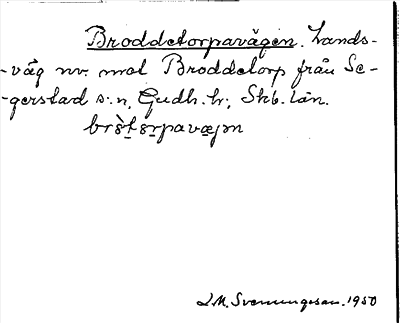 Broddetorpavägen. Lands-
-väg nv. mot Broddetorp från Se-
-gerstad s:n, Gudh. hr., Skb. län.
J.M. Svenningsson. 1950